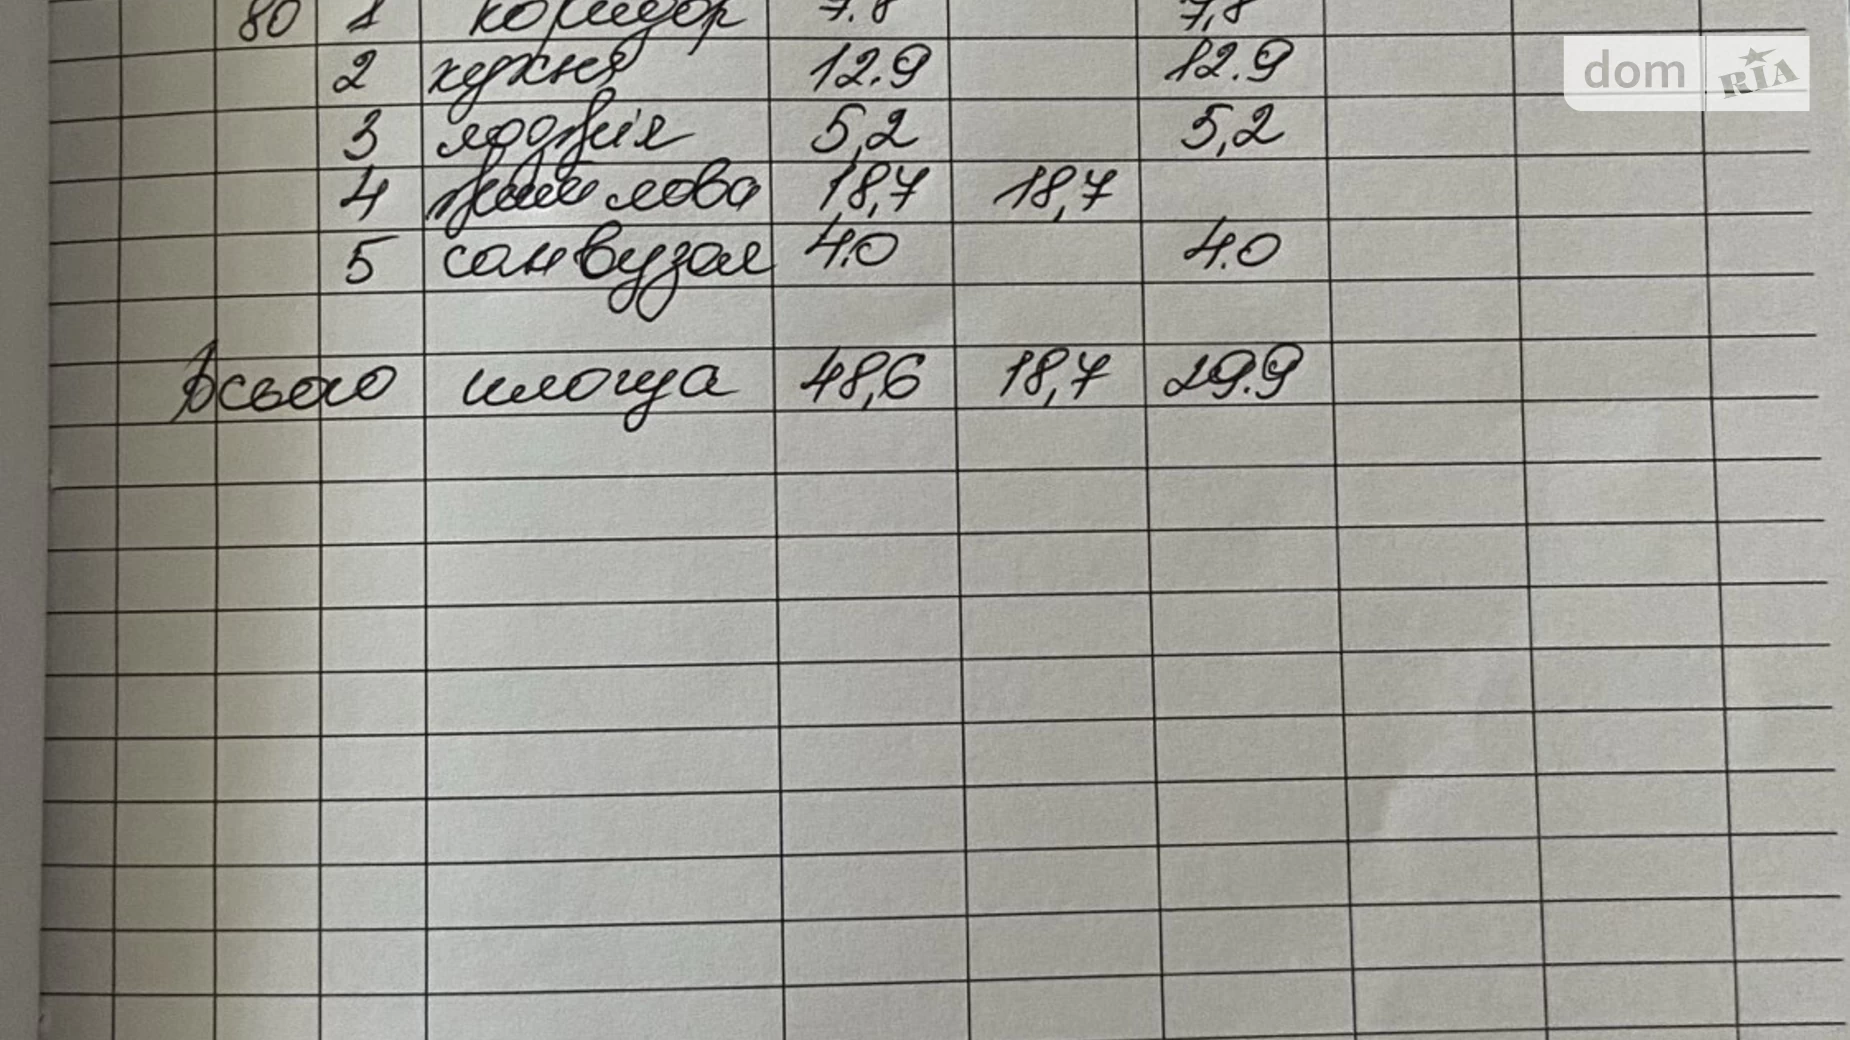 80 1 коридор 7.8 7,8
2 кухня 12.9 12.9
3 лоджія 5,2 5,2
4 житлова 18,7 18,7
5 санвузол 4.0 4.0
Всього площа 48,6 18,7 29.9
dom RIA